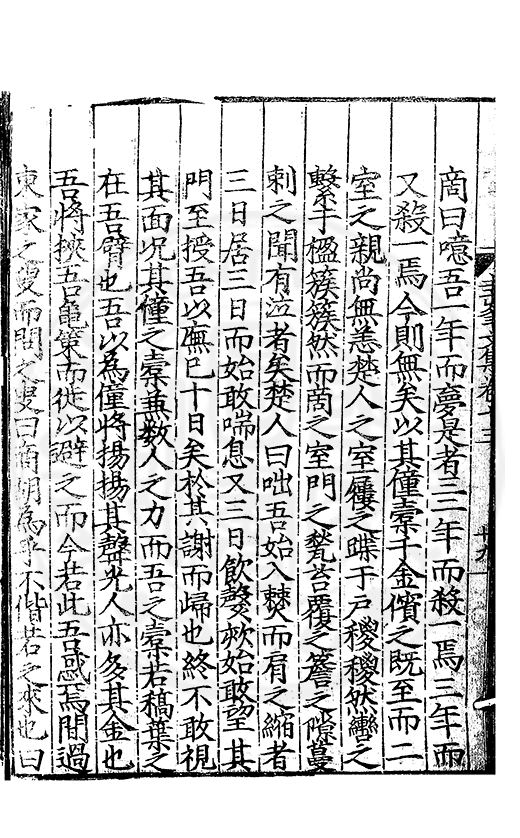 啇曰噫吾一年而夢是者三三年而殺一焉三年而
又殺一焉今則無矣以其僮橐千金儐之既至而二
室之親尚無恙楚人之室屨之蹀于戶稷稷然轡之
繫于楹簇簇然而啇之室門之甃苔覆之簷之隙蔓
刺之聞有泣者矣楚人曰咄吾始入棘而肩之縮者
三日居三日而始敢喘息又三日飲漿粎始敢望其
門至授吾以廡已十日矣於其謝而歸也終不敢視
其面况其僮之橐兼數人之力而吾之橐若稿葉之
在吾臂也吾以為僮將揚揚其聲光人亦多其金也
吾將挾吾龜策而徙以避之而今若此吾惑焉間過
東家之叟而問之叟曰商胡為乎不偕若之來也曰